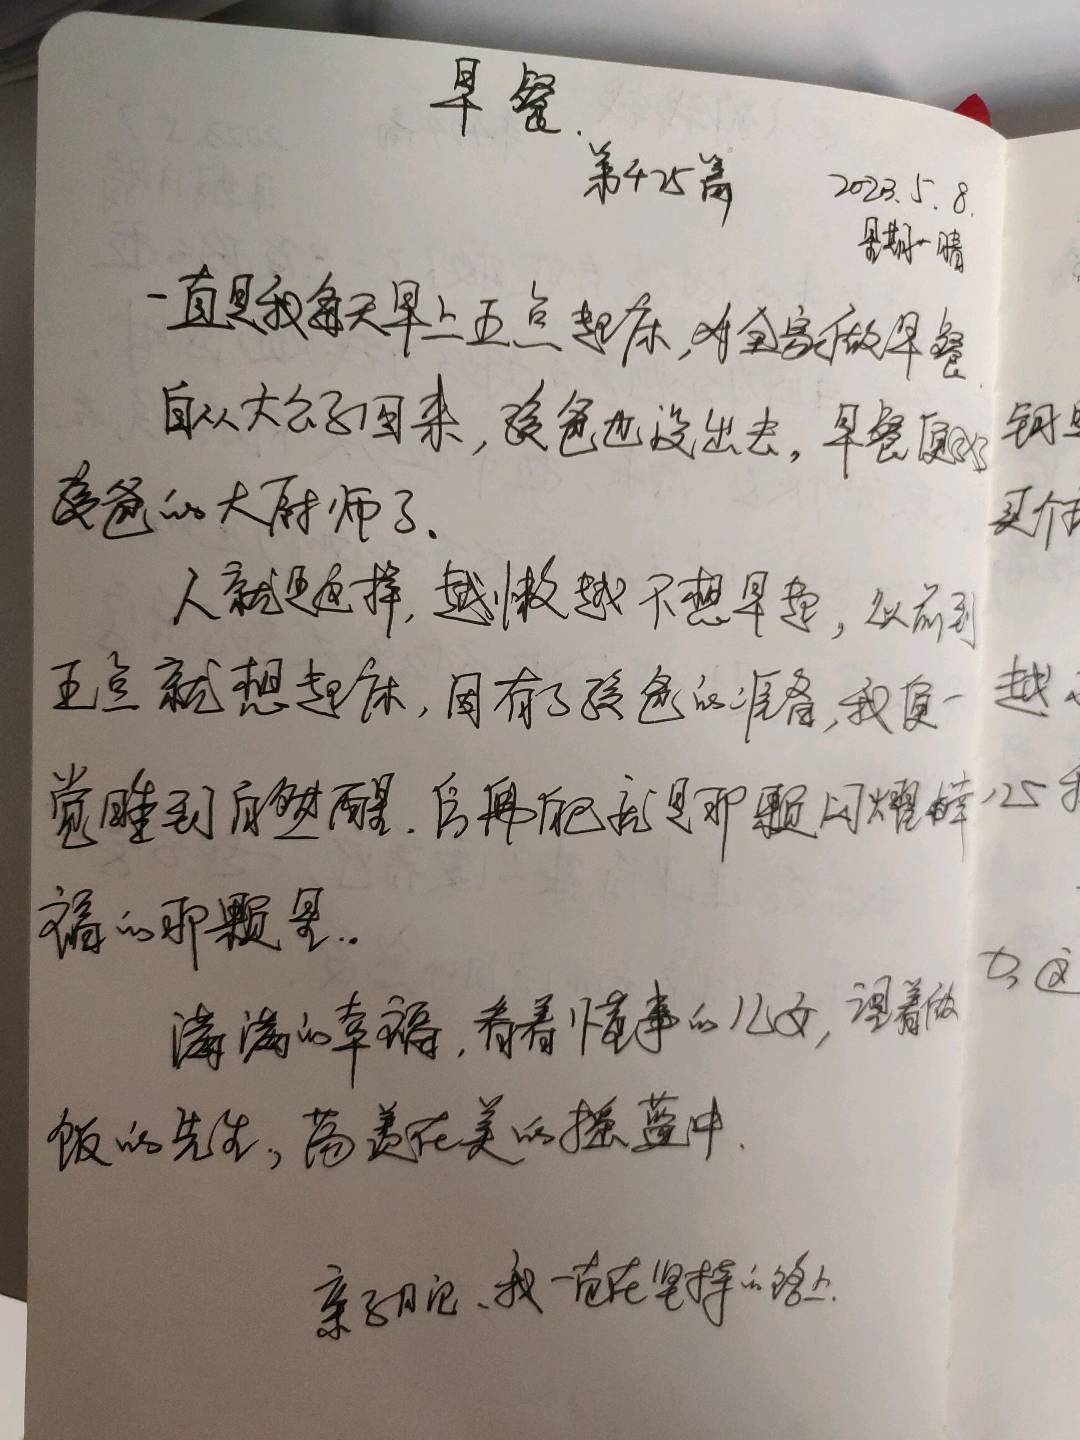 早餐.
第425篇
2023.5.8.
星期一晴
一直是我每天早上五点起床,为全家做早餐.
自从大公子回来,孩爸也没出去,早餐便
孩爸的大厨师了.
人就是这样,越懒越不想早起,以前到
五点就想起床,因有了孩爸的准备,我便一
觉睡到自然醒.自我就是那颗闪耀幸
福的那颗星..
满满的幸福,看着懂事的儿女,望着做
饭的先生,荡漾在美的摇蓝中.
亲子日记、我一直在坚持的路上.
买个
越
125